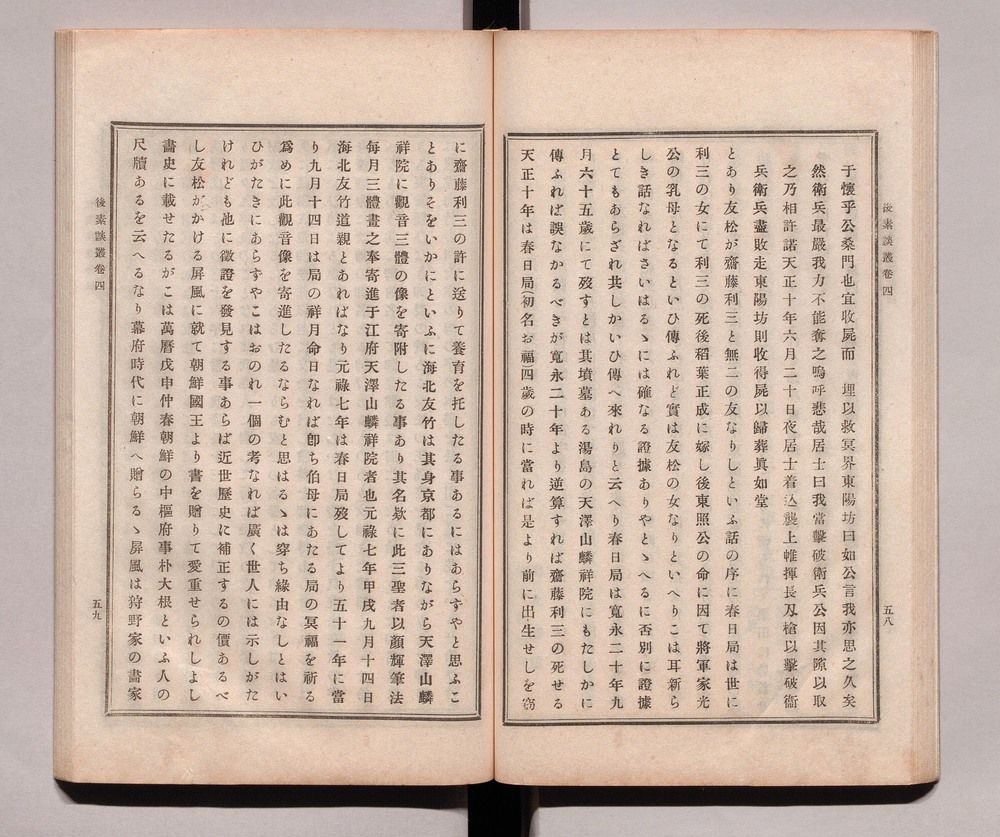 後素談叢卷四
五八
于懷乎公桑門也宜收屍而　埋以救冥界東陽坊曰如公言我亦思之久矣
然衞兵最嚴我力不能奪之嗚呼悲哉居士曰我當擊破衞兵公因其隙以取
之乃相許諾天正十年六月二十日夜居士着込襲上帷揮長刄槍以擊破衞
兵衞兵盡敗走東陽坊則收得屍以歸葬眞如堂
とあり友松が齋藤利三と無二の友なりしといふ話の序に春日局は世に
利三の女にて利三の死後稻葉正成に嫁し後東照公の命に因て將軍家光
公の乳母となるといひ傳ふれど實は友松の女なりといへりこは耳新ら
しき話なればさいはるゝには確なる證據ありやとゝへるに否別に證據
とてもあらざれ共しかいひ傳へ來れりと云へり春日局は寬永二十年九
月六十五歲にて歿すとは其墳墓ある湯島の天澤山麟祥院にもたしかに
傳ふれば誤なかるべきが寬永二十年より逆算すれば齋藤利三の死せる
天正十年は春日局(初名お福)四歲の時に當れば是より前に出生せしを窃
に齋藤利三の許に送りて養育を托したる事あるにはあらすやと思ふこ
とありそをいかにといふに海北友竹は其身京都にありながら天澤山麟
祥院に觀音三體の像を寄附したる事あり其名欸に此三聖者以顏輝筆法
每月三體畫之奉寄進于江府天澤山麟祥院者也元祿七年甲戌九月十四日
海北友竹道親とあればなり元祿七年は春日局歿してより五十一年に當
り九月十四日は局の祥月命日なれば卽ち伯母にあたる局の冥福を祈る
爲めに此觀音像を寄進したるならむと思はるゝは穿ち緣由なしとはい
ひがたきにあらすやこはおのれ一個の考なれば廣く世人には示しがた
けれども他に徵證を發見する事あらば近世歷史に補正するの價あるべ
し友松がかける屛風に就て朝鮮國王より書を贈りて愛重せられしよし
畵史に載せたるがこは萬曆戊申仲春朝鮮の中樞府事朴大根といふ人の
尺牘あるを云へるなり幕府時代に朝鮮へ贈らるゝ屛風は狩野家の畫家
後素談叢卷四
五九